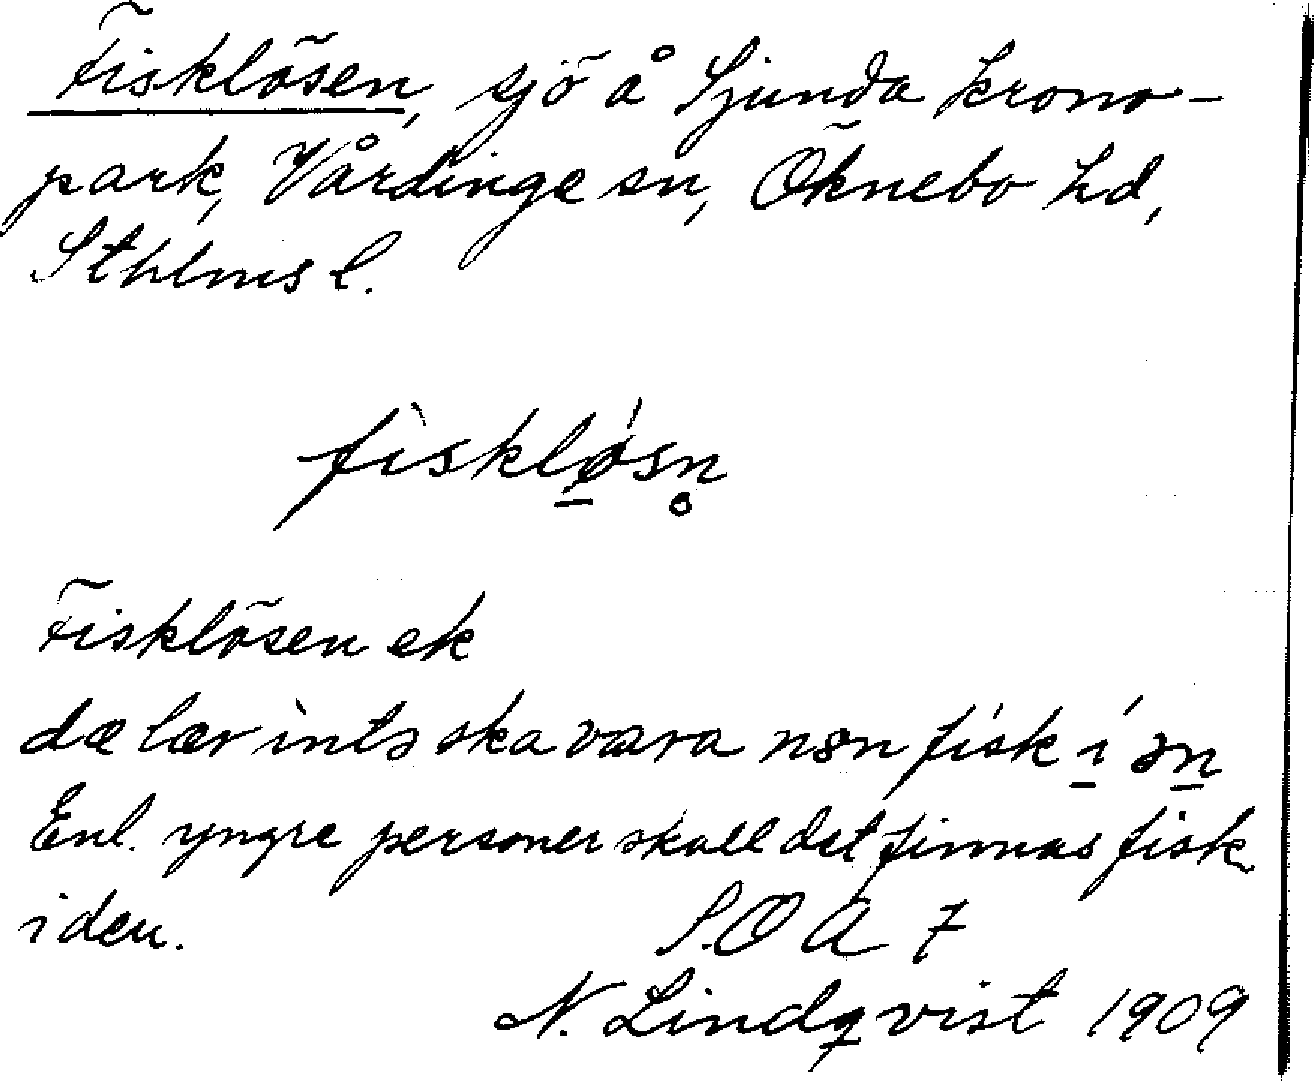 Fisklösen, sjö å Sjunda krono-
park, Vårdinge sn, Öknebo hd,
Sthlms l.
fìskløsn̥
Fisklösen ek
dæ lær ìntə ska væra nøn fisk í ən
Enl. yngre personer skall det finnas fisk
i den.
S.O A 7
N. Lindqvist 1909